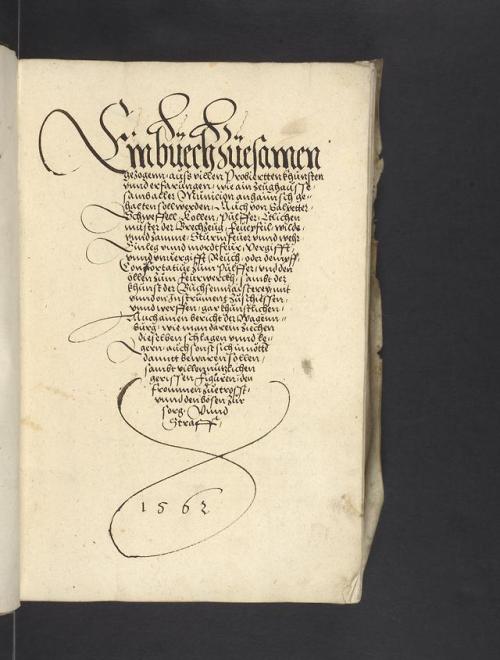 Ein buech Zuesamen
gezogenn auß villen Probiertten khünsten
vnnd erfarungen, wie ain Zeughauß sa
samb aller Municion anhaimsch ge
halten soll werden, Auch von Salpetter
Schweffell, Kollen, Pulffer, Etlichen
muster der Brechzeug, Feurpfeil wilde
vnnd zamme, Sturm feur vnnd wehr
Einleg vnnd mordtfeur, Vergifft
vnnd vnuergifft Reuch, oder dempff
Confortatiue zum Pulffer, vnd den
öllen zum Feurwerckh, sambt der
khunst der Büchsenmaisterey mit
vnnd on Instrument zuschiessen
vnnd werffen, gar khunstlichen
Auch ainen bericht der Wagenn
burg, wie man daren ziechen
dieselben schlagen vnnd le
gern, auch sonst sich in nötte
damit bewaren sollen,
sambt villen nutzlichen
gerissen figuren, den
frommen zue trosst
vnnd den bösen zur
sorg Vnnd
Straff
1563